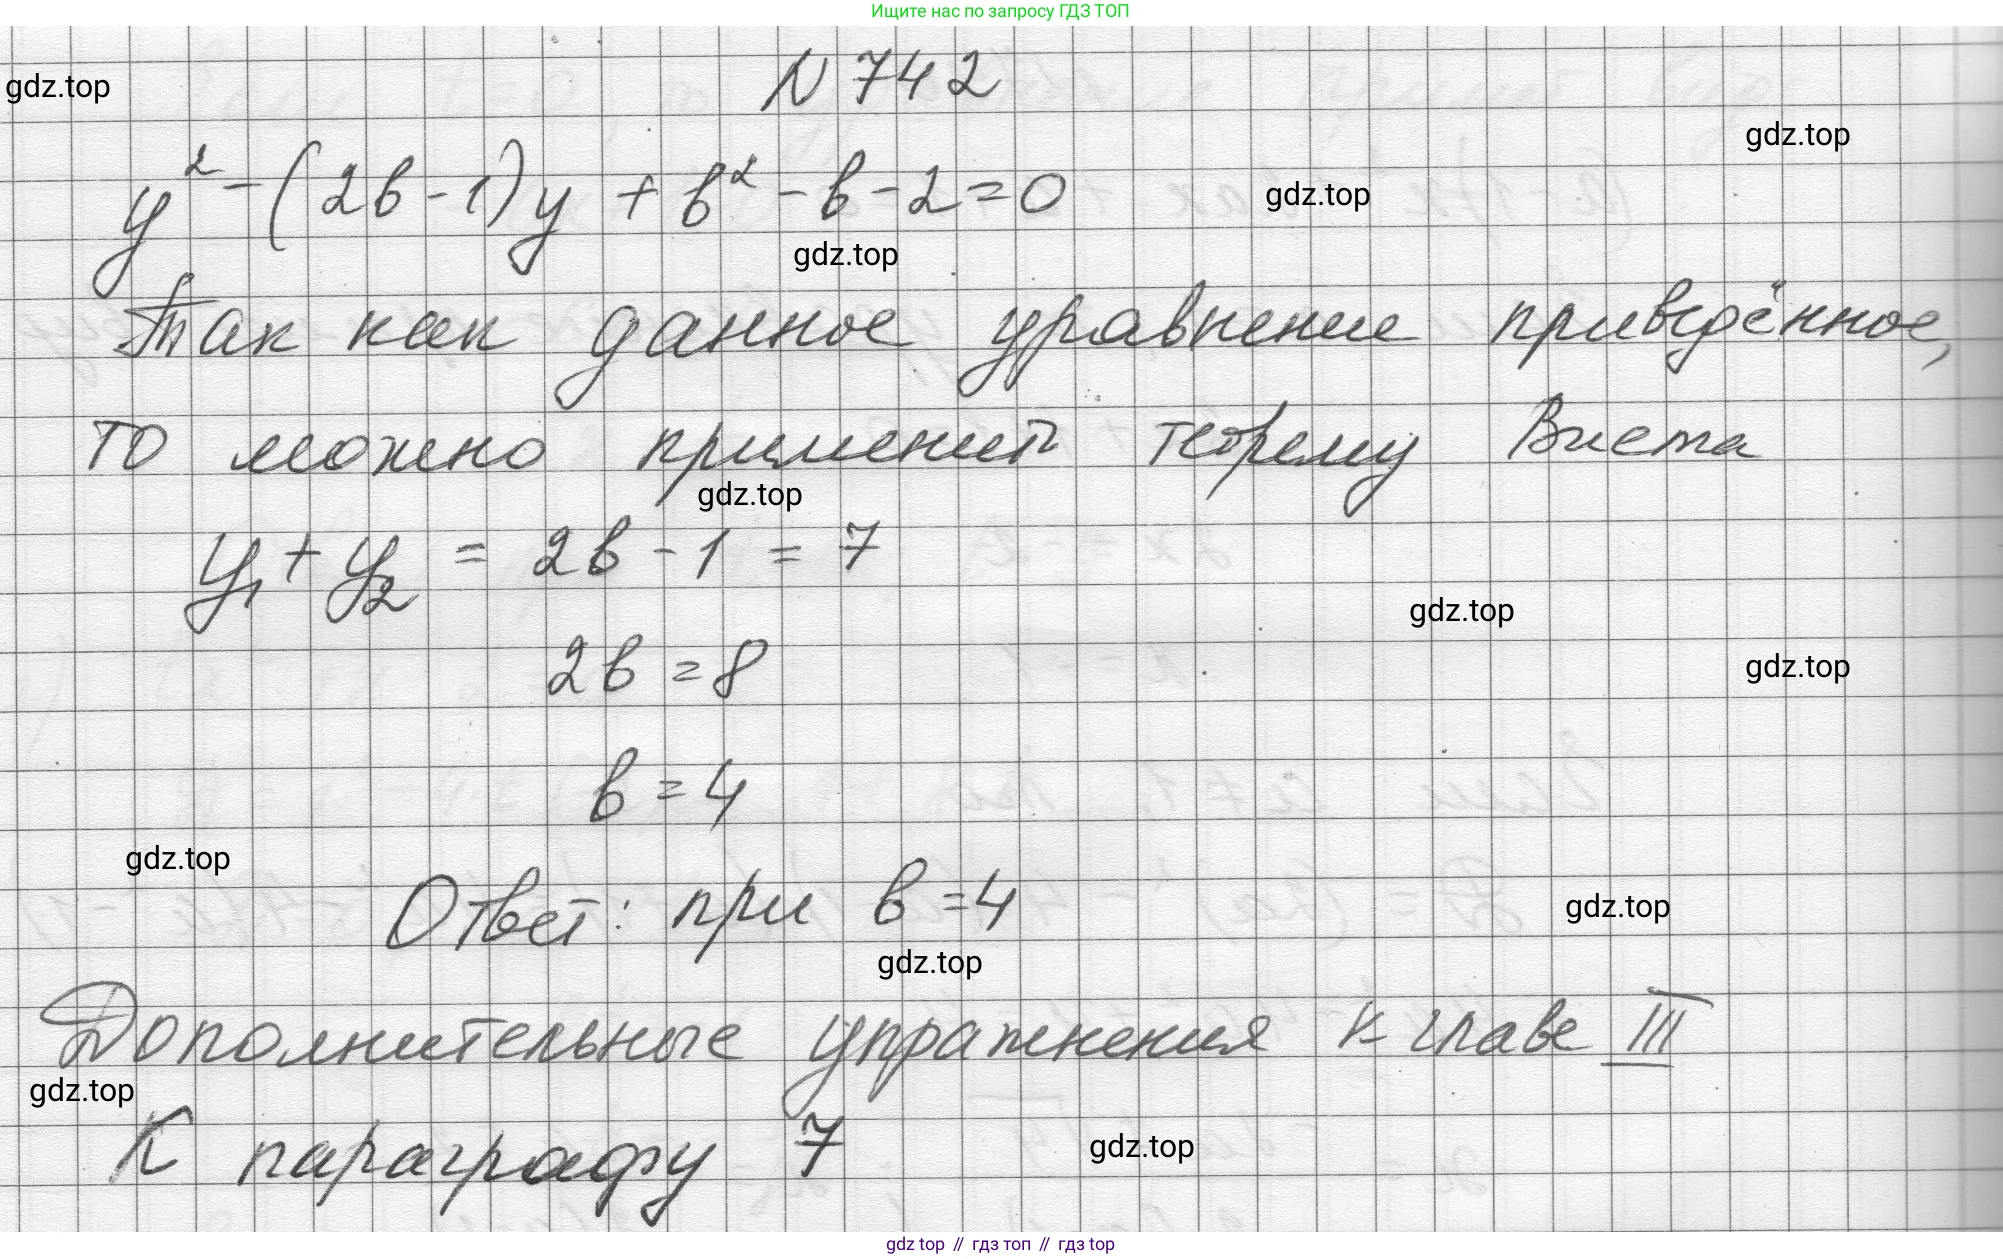 Ищите нас по запросу ГДЗ ТОП
N 742
gdz.top
gdz.top
y² - (2в - 1)y + в² - в - 2 = 0
gdz.top
gdz.top
Так как данное уравнение приведённое,
то можно применить теорему Виета
gdz.top
y₁ + y₂ = 2в - 1 = 7
gdz.top
2в = 8
gdz.top
в = 4
gdz.top
Ответ: при в = 4
gdz.top
gdz.top
Дополнительные упражнения к главе III
gdz.top
К параграфу 7
gdz.top
gdz top // гдз топ // гдз top